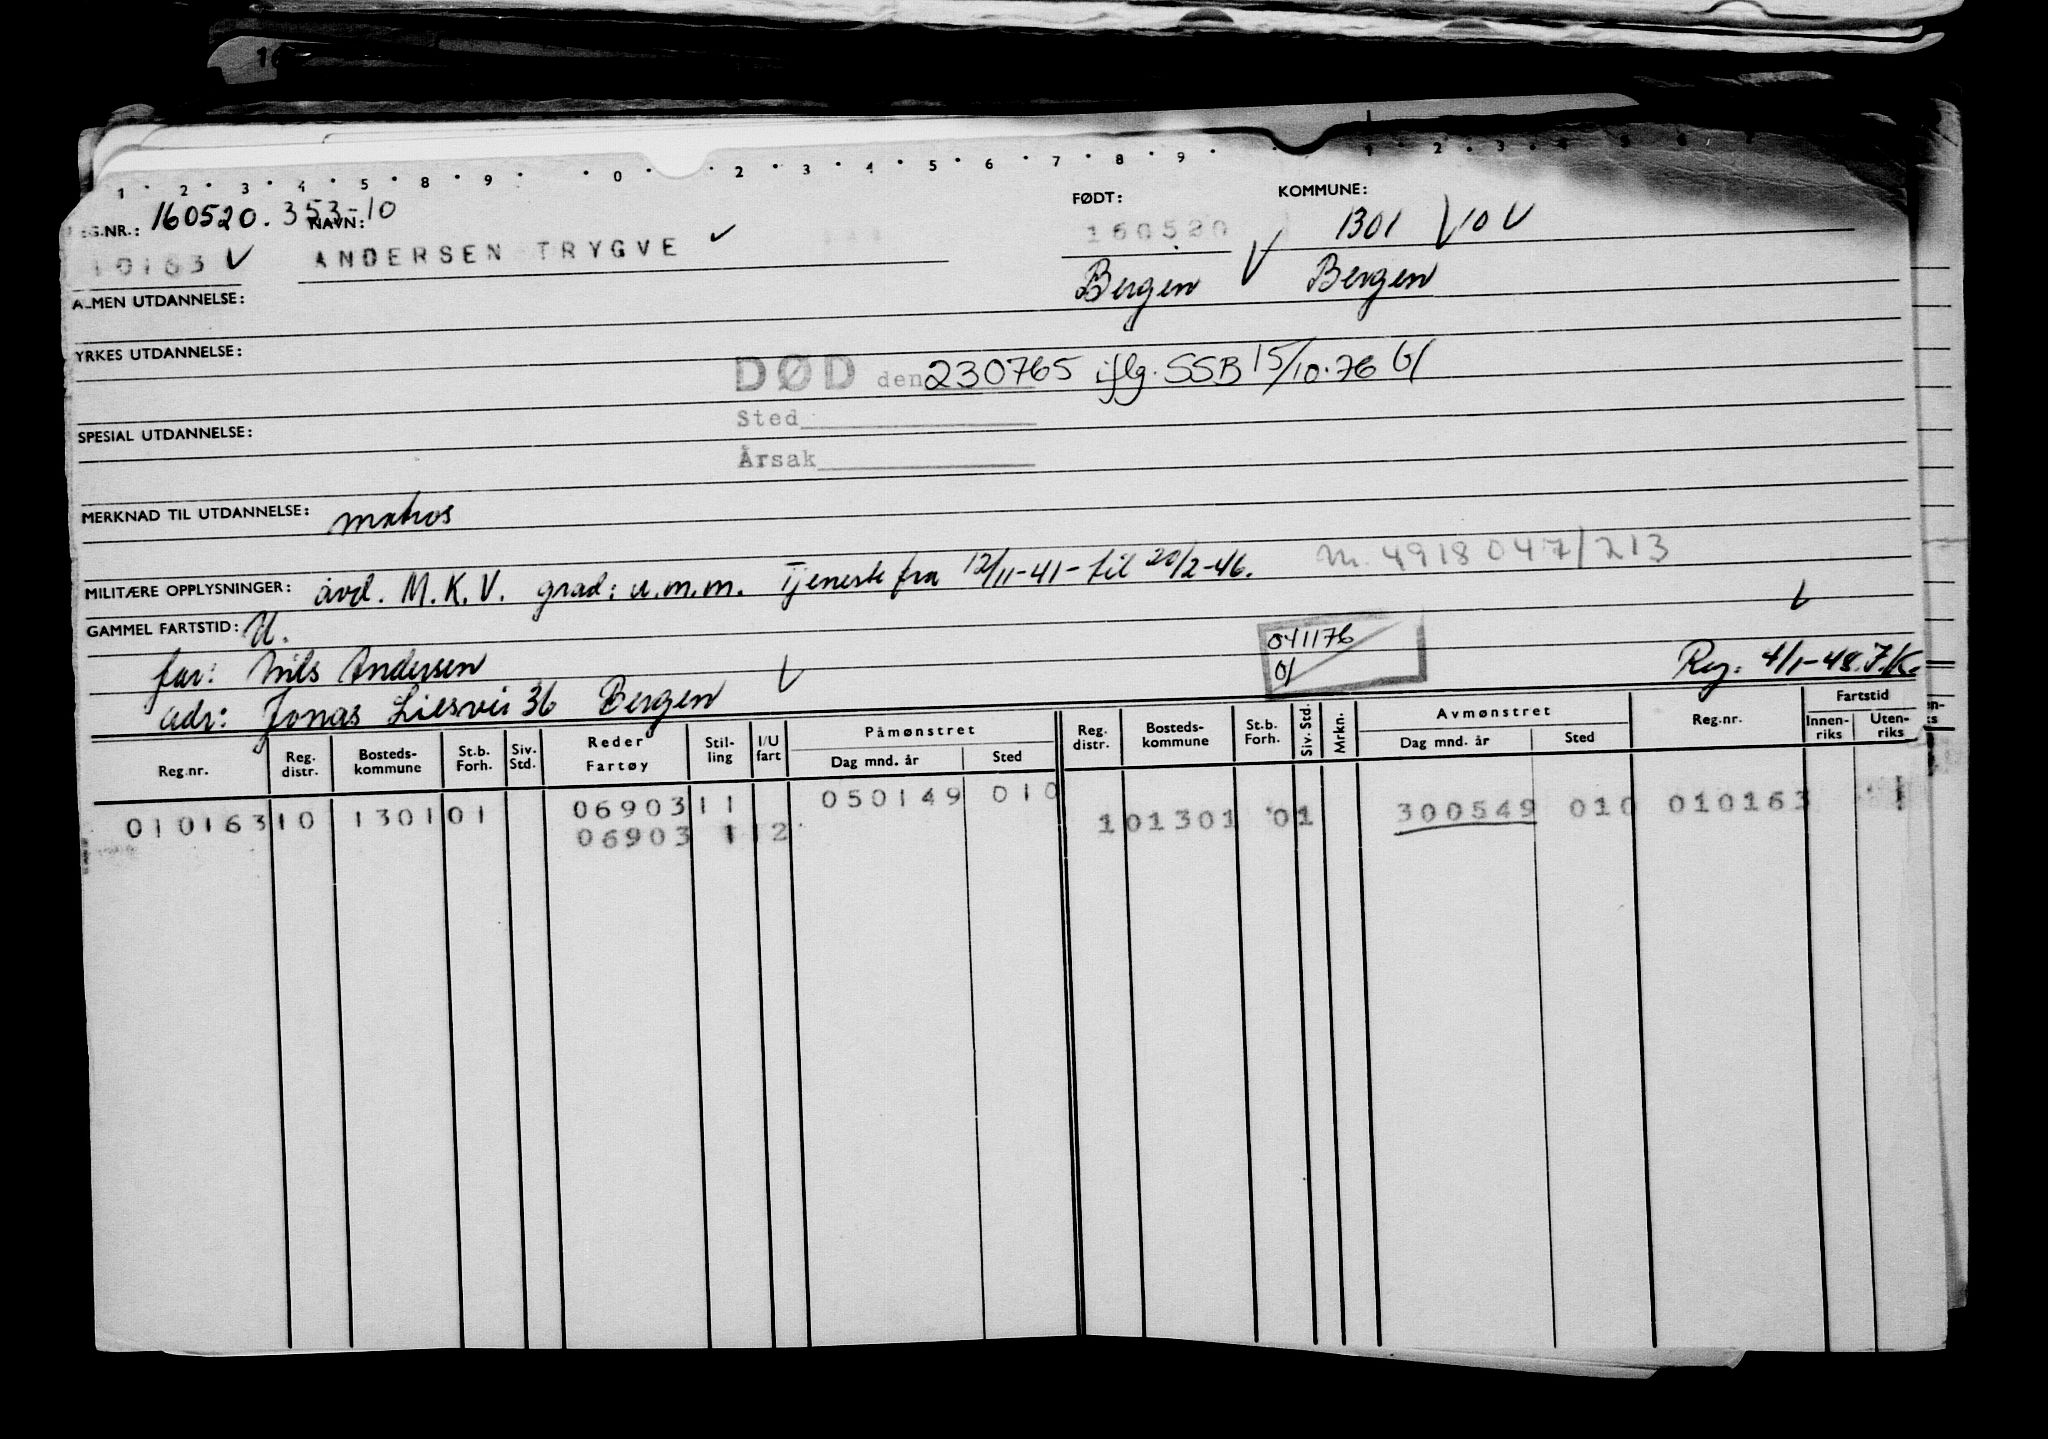 1 · 2 · 3 · 4 · 5 · 8 · 9 · · 0 · · 2 · 3 · 4 · 5 · 6 · 7 · 8 · 9 · · 1 · 2 · 3 · 4 · 5 · 6 · 7
FØDT: KOMMUNE:
G.NR.: 160520.353-10 NAVN: 160520 1301 V10 V
10163 V ANDERSEN TRYGVE ✓
Bergen V Bergen
ALMEN UTDANNELSE:
YRKES UTDANNELSE:
DØD den 230765 iflg. SSB 15/10.76
Sted
SPESIAL UTDANNELSE:
Årsak
MERKNAD TIL UTDANNELSE: matros
MILITÆRE OPPLYSNINGER: avd. M.K.V. grad: u.m.m. Tjeneste fra 12/11-41- til 20/2-46. nr. 4918047/213
GAMMEL FARTSTID: U.
041176
far: Nils Andersen Reg: 4/1-48. J.K.
adr: Jonas Liesvei 36 Bergen
Reg.nr. Reg. distr. Bosteds-kommune St.b. Forh. Siv. Std. Reder Fartøy Stil-ling I/U fart Påmønstret Dag mnd. år Sted Reg. distr. Bosteds-kommune St.b. Forh. Siv. Std. Mrkn. Avmønstret Dag mnd. år Sted Reg.nr. Fartstid Innen-riks Uten-riks
010163 10 1301 01 06903 11 050149 010 10 1301 01 300549 010 010163 1
06903 1 12